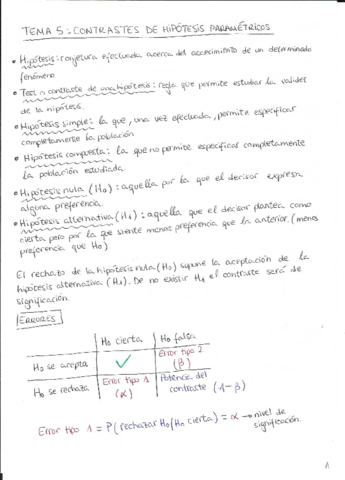 TEMA 5: CONTRASTES DE HIPÓTESIS PARAMÉTRICOS
• Hipótesis: conjetura efectuada acerca del acaecimiento de un determinado
fenómeno
• Test o contraste de una hipótesis: regla que permite estudiar la validez
de la hipótesis.
• Hipótesis simple: la que, una vez efectuada, permite especificar
completamente la población
• Hipótesis compuesta: la que no permite especificar completamente
la población estudiada.
• Hipótesis nula (H0): aquella por la que el decisor expresa
alguna preferencia.
• Hipótesis alternativa (H1): aquella que el decisor plantea como
cierta pero por la que siente menos preferencia que la anterior. (menos
preferencia que H0).
El rechazo de la hipótesis nula (H0) supone la aceptación de la
hipótesis alternativa (H1). De no existir H1 el contraste será de
significación.
ERRORES
H0 cierta H0 falsa
H0 se acepta ✓ Error tipo 2 (β)
H0 se rechaza Error tipo 1 (α) Potencia del contraste (1-β)
Error tipo 1 = P(rechazar H0/H0 cierta) = α → nivel de
significación.
1